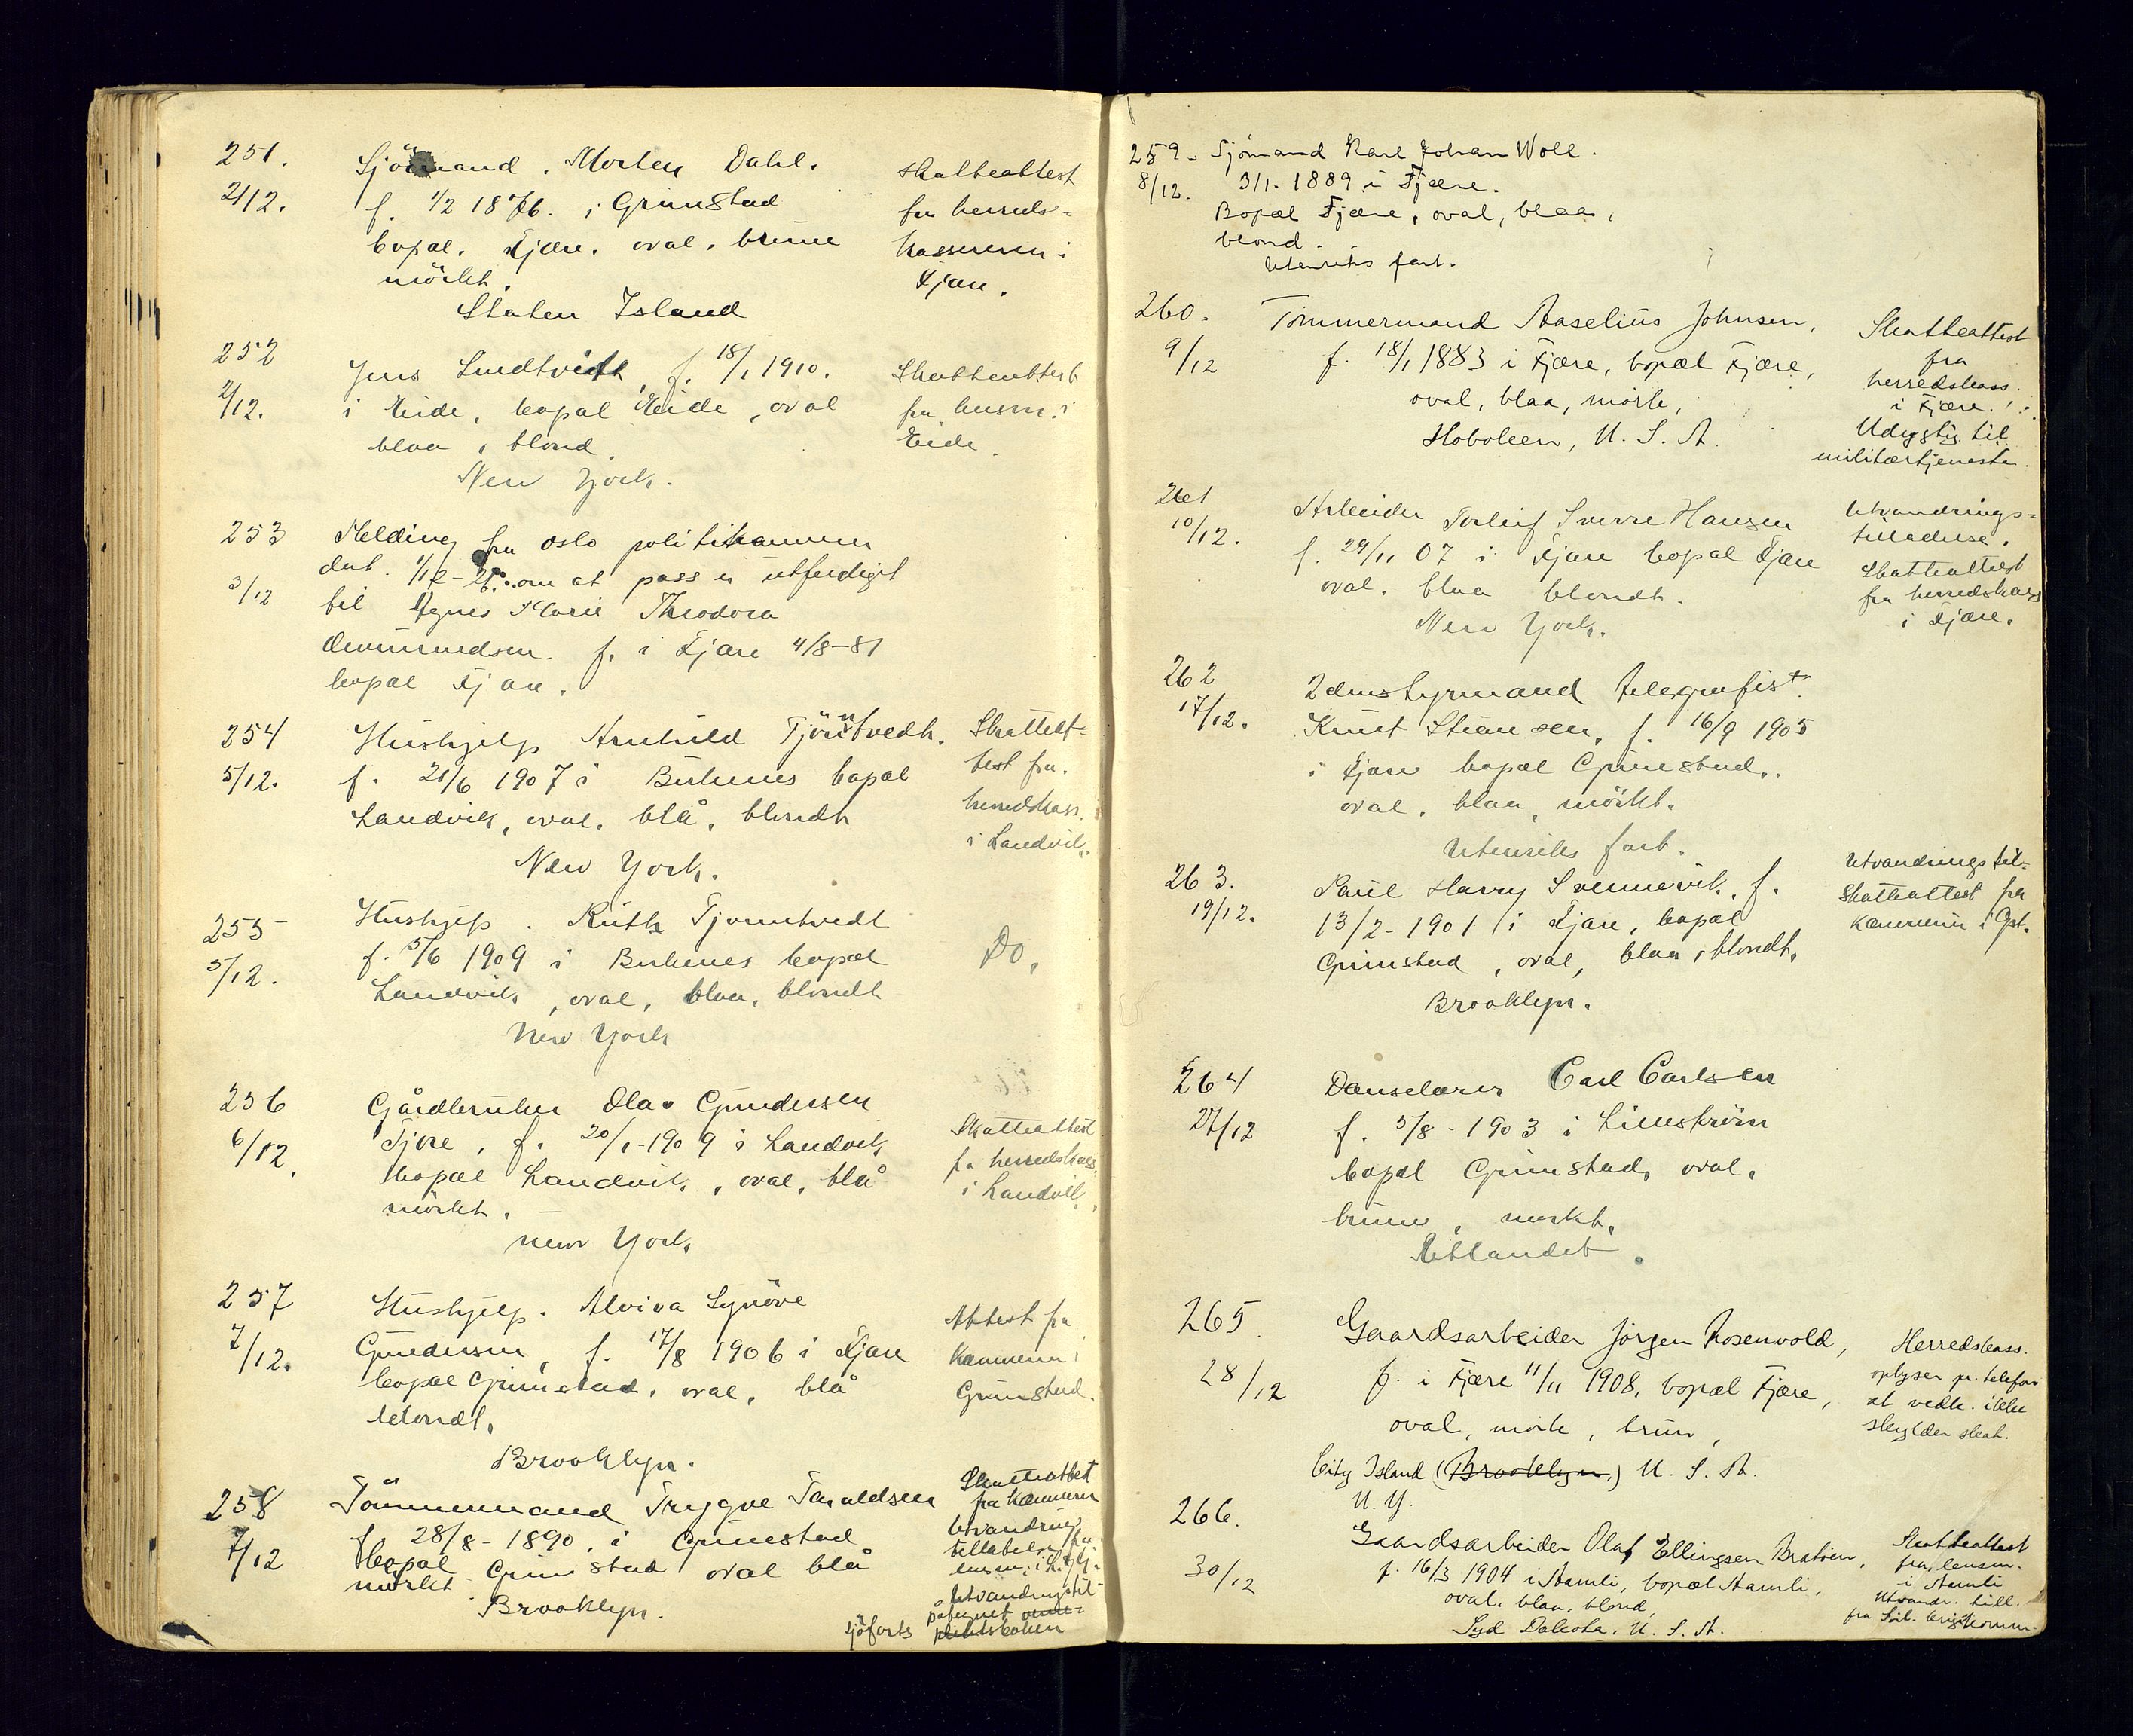 251.
2/12.
Sjömand. Morten Dahl.
f. 1/2 1876. i Grimstad
bopæl. Fjære. oval. brune
mörkt.
Staten Island
Skatteattest
fra herreds-
kassereren i
Fjære.
252
2/12.
Jens Lundtveit, f. 18/1 1910.
i Eide, bopæl Eide, oval
blaa, blond.
New York.
Skatteattest
fra lensm. i
Eide.
253
3/12
Melding fra Oslo politikammer
dat. 1/12-26. om at pass er utferdiget
til Agnes Marie Theodora
f. i Fjære 4/8-81
bopæl Fjære.
254
5/12.
Hushjelp Arnhild Tjönntvedt.
f. 21/6 1907 i Birkenes bopæl
Landvik, oval, blå, blondt
New York.
Skatteat-
test fra
herredskass.
i Landvik.
255
5/12.
Hushjelp. Ruth Tjonntvedt
f. 5/6 1909 i Birkenes bopæl
Landvik, oval, blaa, blondt
New York
Do,
256
6/12.
Gårdbruker Olav Gundersen
Tjore, f. 20/1-1909 i Landvik
bopæl Landvik, oval, blå
mörkt.
New York
Skatteattest
fa herredskass.
i Landvik.
257
7/12.
Hushjelp. Alviva Synöve
Gundersen, f. 17/8 1906 i Fjære
bopæl Grimstad, oval, blå
blondt.
Brooklyn.
Attest fra
Kæmneren i
Grimstad.
258
7/12
Tömmermand Trygve Taraldsen
f. 28/8-1890. i Grimstad
bopæl Grimstad oval blå
mörkt
Brooklyn.
Skatteattest
fra Kæmneren
Utvandrings
tilladelse fra
Utvandringstil-
påtegnet
sjöfarts
259.
8/12.
Sjömand Karl Johan Woll.
3/1. 1889 i Fjære.
Bopæl Fjære, oval, blaa,
blond.
Utenriks fart.
260.
9/12
Tömmermand Aaselius Johnsen,
f. 18/1 1883 i Fjære, bopæl Fjære,
oval, blaa, mörk,
Hoboken, U. S. A.
Skatteattest
fra
herredskass.
i Fjære.
Udygtig til
militærtjeneste.
261
10/12.
Arbeider Torleif Sverre Hansen
f. 29/11 07 i Fjære bopæl Fjære
oval. blaa blondt.
New York.
Utvandrings-
tilladelse.
Skatteattest
fra herredskass
i Fjære.
262
17/12.
2denstyrmand telegrafist.
Knut Stiansen, f. 16/9 1905
i Fjære bopæl Grimstad.
oval. blaa, mörkt.
Utenriks fart.
263.
19/12.
Paul Harry Svennevik, f.
13/2-1901 i Fjære, bopæl
Grimstad, oval, blaa, blondt.
Brooklyn.
Utvandringstil-
Skatteattest fra
Kæmneren i Gst.
264
27/12
Danselærer Carl Carlsen
f. 5/8-1903 i
bopæl Grimstad, oval.
brune, mørkt,
Utlandet.
265.
28/12
Gaardsarbeider Jörgen Rosenvold,
f. i Fjære 11/11 1908, bopæl Fjære,
oval, mörk, brun,
City Island (Brooklyn) U. S. A.
N. Y.
Herredskass.
oplyser pr. telefon
at vedk. ikke
skylder skat.
266.
30/12
Gaardsarbeider Olaf Ellingsen Bratöen,
f. 16/3 1904 i Aamli, bopæl Aamli,
oval. blaa, blond,
Syd Dakota, U. S. A.
Skatteattest
fra lensm.
i Aamli
Utvandr. till.
fra